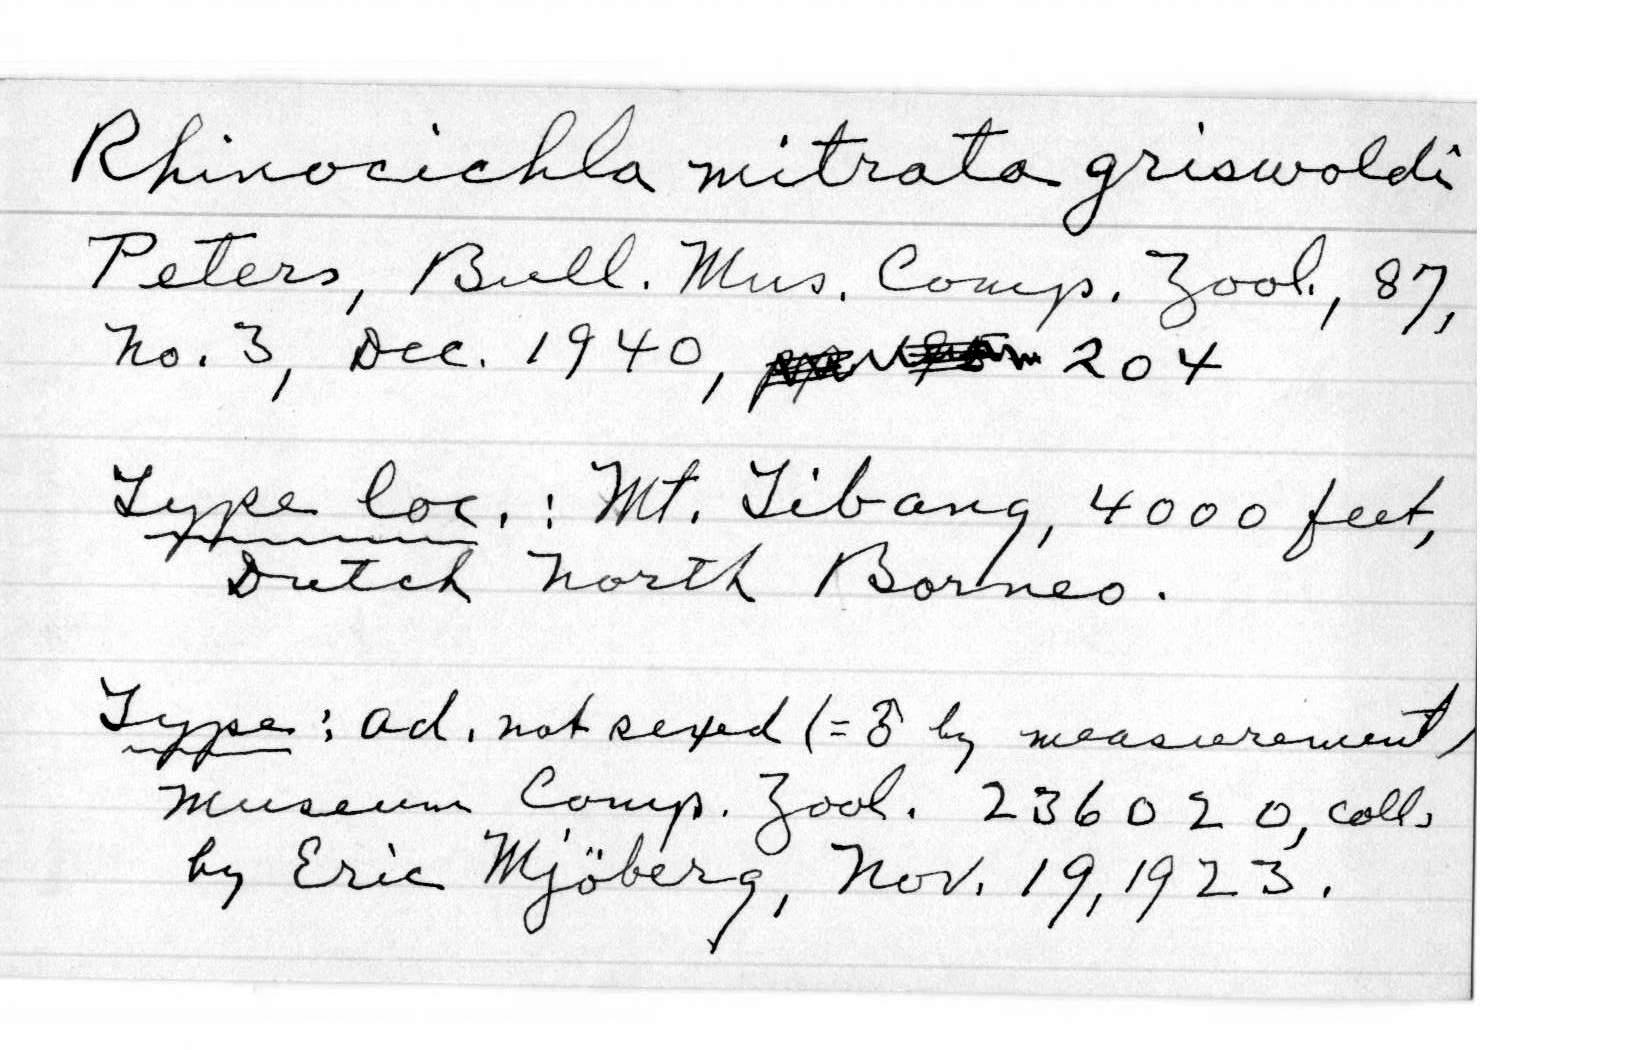 Rhinocichla mitrata griswoldi
Peters, Bull. Mus. Comp. Zool., 87,
No. 3, Dec. 1940, 204
Type loc.: Mt. Tibang, 4000 feet,
Dutch North Borneo.
Type: ad. not sexed (= ♂ by measurement)
Museum Comp. Zool. 236020, coll.
by Eric Mjöberg, Nov. 19, 1923.